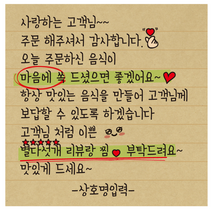 사랑하는 고객님~~
주문 해주셔서 감사합니다.
오늘 주문하신 음식이
마음에 쏙 드셨으면 좋겠어요~
항상 맛있는 음식을 만들어 고객님께
보답할 수 있도록 하겠습니다
고객님 처럼 이쁜
별다섯개 리뷰랑 찜 부탁드려요~
맛있게 드세요~
-상호명입력-